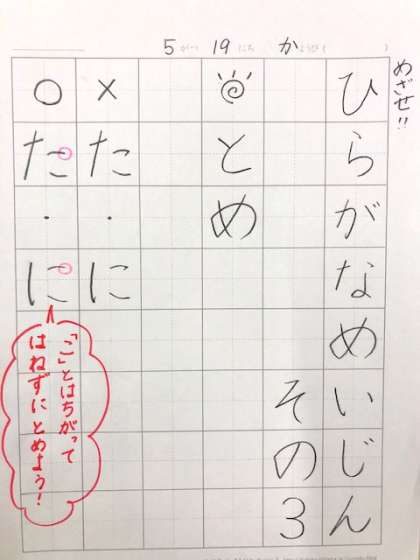 5がつ 19にち かようび( )
めざせ!!
ひらがなめいじん
その3
とめ
×
た
・
に
○
た
・
に
「こ」とはちがって
はねずにとめよう!